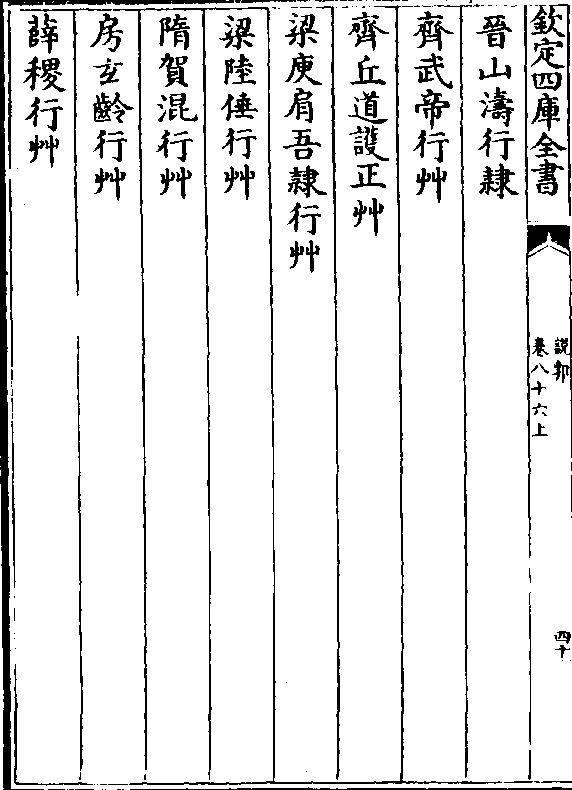 欽定四庫全書
説郛
卷八十六上
四十
晉山濤行隷
齊武帝行艸
齊丘道護正艸
梁庾肩吾隷行艸
梁陸倕行艸
隋賀混行艸
房玄齡行艸
薛稷行艸